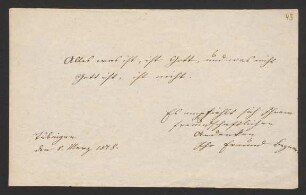 43
Alles was ist, ist Gott, und was nicht
Gott ist, ist nicht.
Es empfiehlt sich Ihrem
freundschaftlichen
Andenken
Ihr Freund
Tübingen
den 8. März